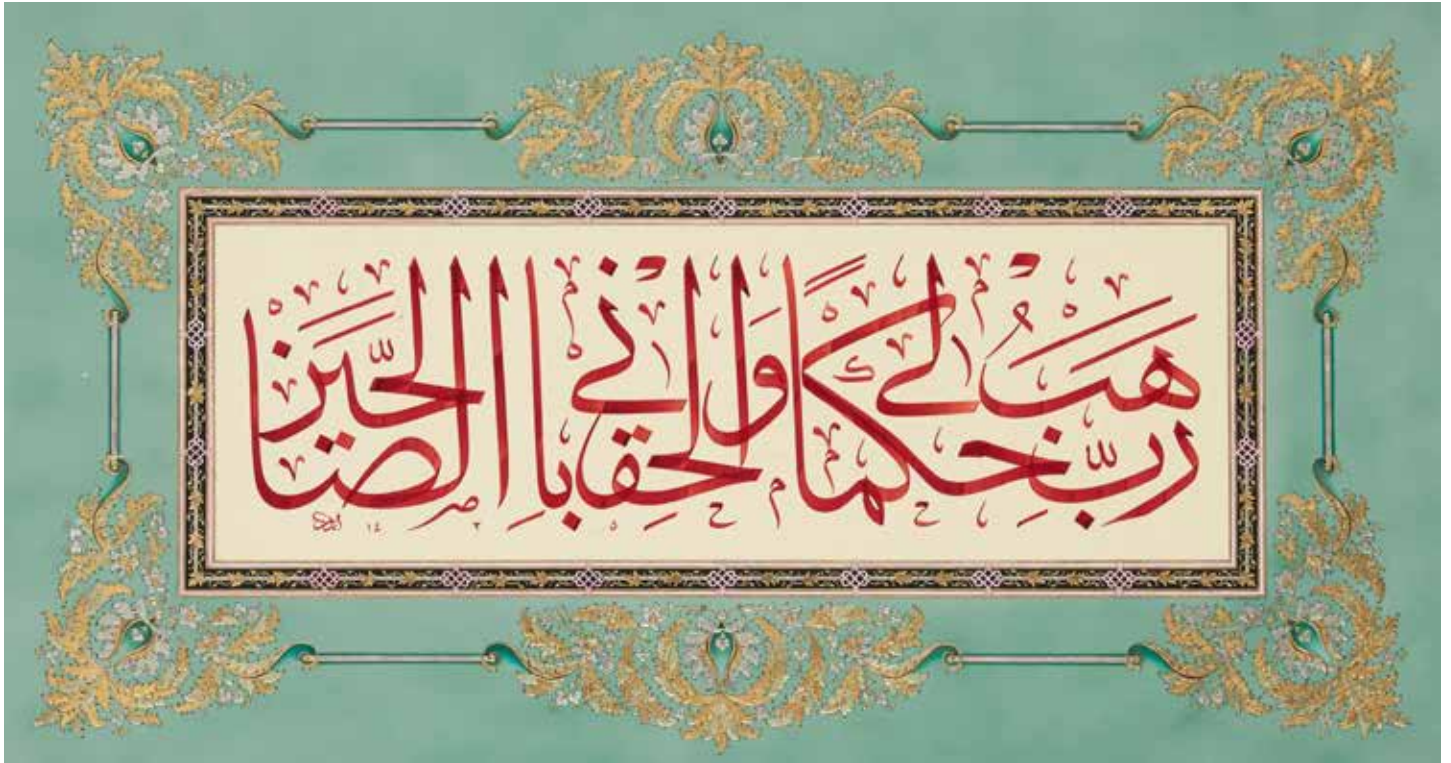 رَبِّ هَبْ لِي حُكْمًا وَأَلْحِقْنِي بِالصَّالِحِينَ